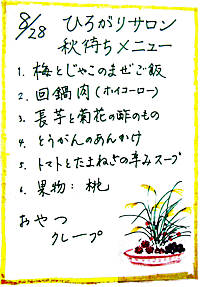 8/28 ひろがりサロン
秋待ちメニュー
1. 梅とじゃこのまぜご飯
2. 回鍋肉(ホイコーロー)
3. 長芋と菊花の酢のもの
4. とうがんのあんかけ
5. トマトとたまねぎの辛みスープ
6. 果物:桃
おやつ
クレープ